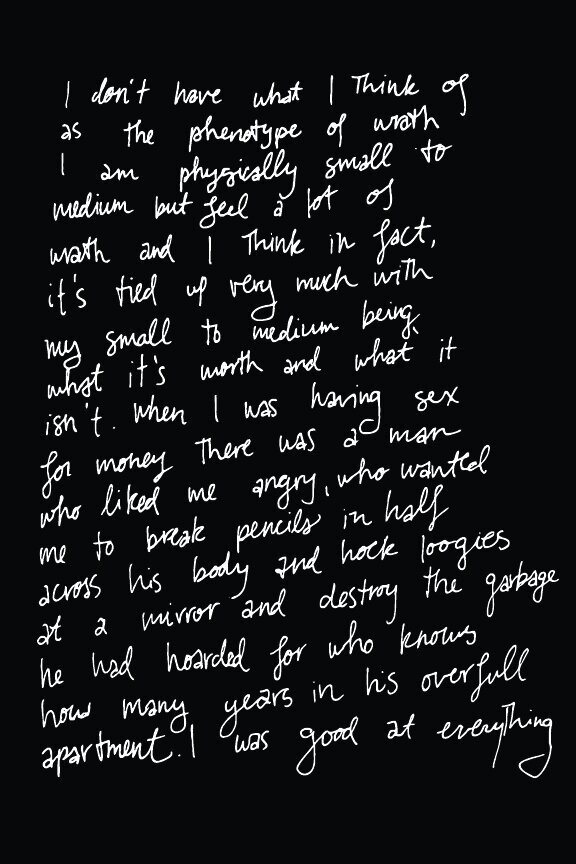 I don't have what I think of
as the phenotype of wrath
I am physically small to
medium but feel a lot of
wrath and I think in fact,
it's tied up very much with
my small to medium being,
what it's worth and what it
isn't. when I was having sex
for money there was a man
who liked me angry, who wanted
me to break pencils in half
across his body and hock loogies
at a mirror and destroy the garbage
he had hoarded for who knows
how many years in his overfull
apartment. I was good at everything